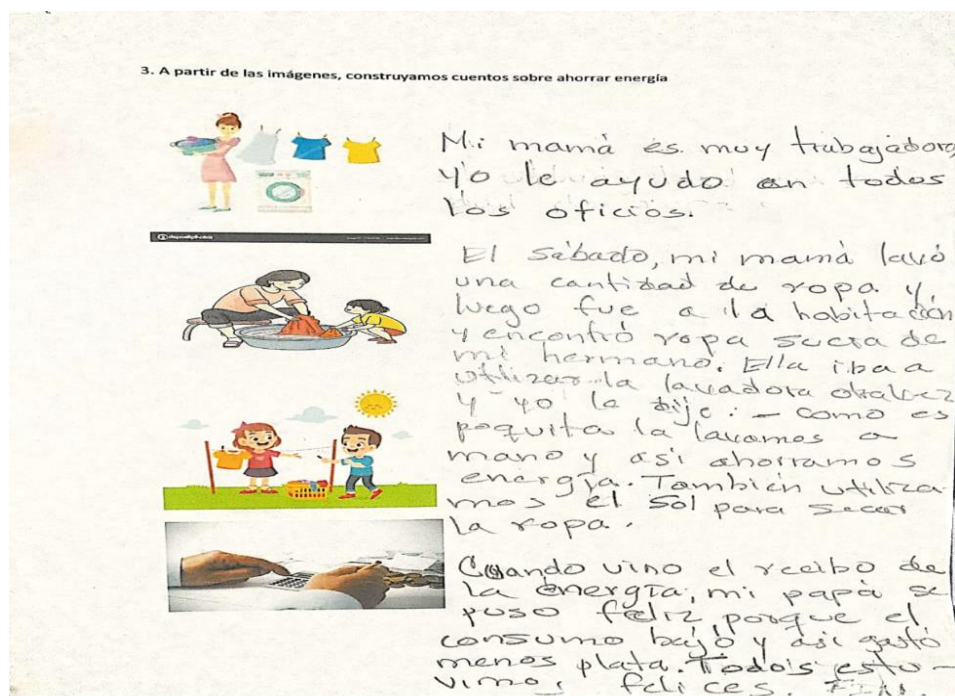 3. A partir de las imágenes, construyamos cuentos sobre ahorrar energía
Mi mamá es muy trabajadora,
yo le ayudo en todos
los oficios.
El sábado, mi mamá lavó
una cantidad de ropa y
luego fue a la habitación
y encontró ropa sucia de
mi hermano. Ella iba a
utilizar la lavadora otravez
y yo le dije: - como es
poquita la lavamos a
mano y así ahorramos
energía. También utiliza-
mos el sol para secar
la ropa.
Cuando vino el recibo de
la energía, mi papá se
puso feliz porque el
consumo bajó y así gastó
menos plata. Todos estu-
vimos felices